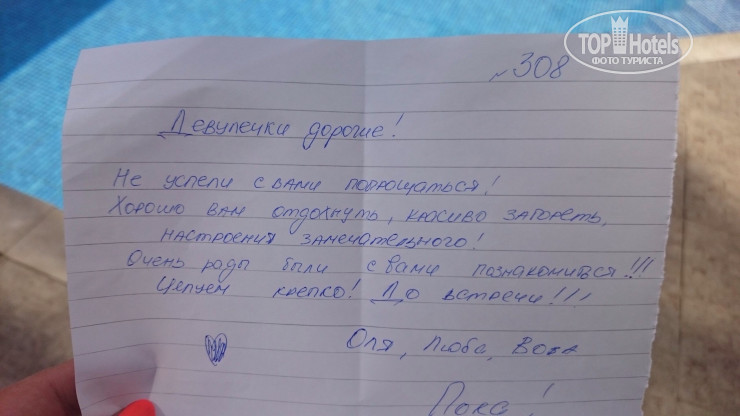 TOP Hotels
ФОТО ТУРИСТА
№308
Девулечки дорогие!
Не успели с вами попрощаться!
Хорошо вам отдохнуть, красиво загореть,
настроения замечательного!
Очень рады были с вами познакомиться!!!
Целуем крепко! До встречи!!!
Оля, Люба, Вова
Пока!